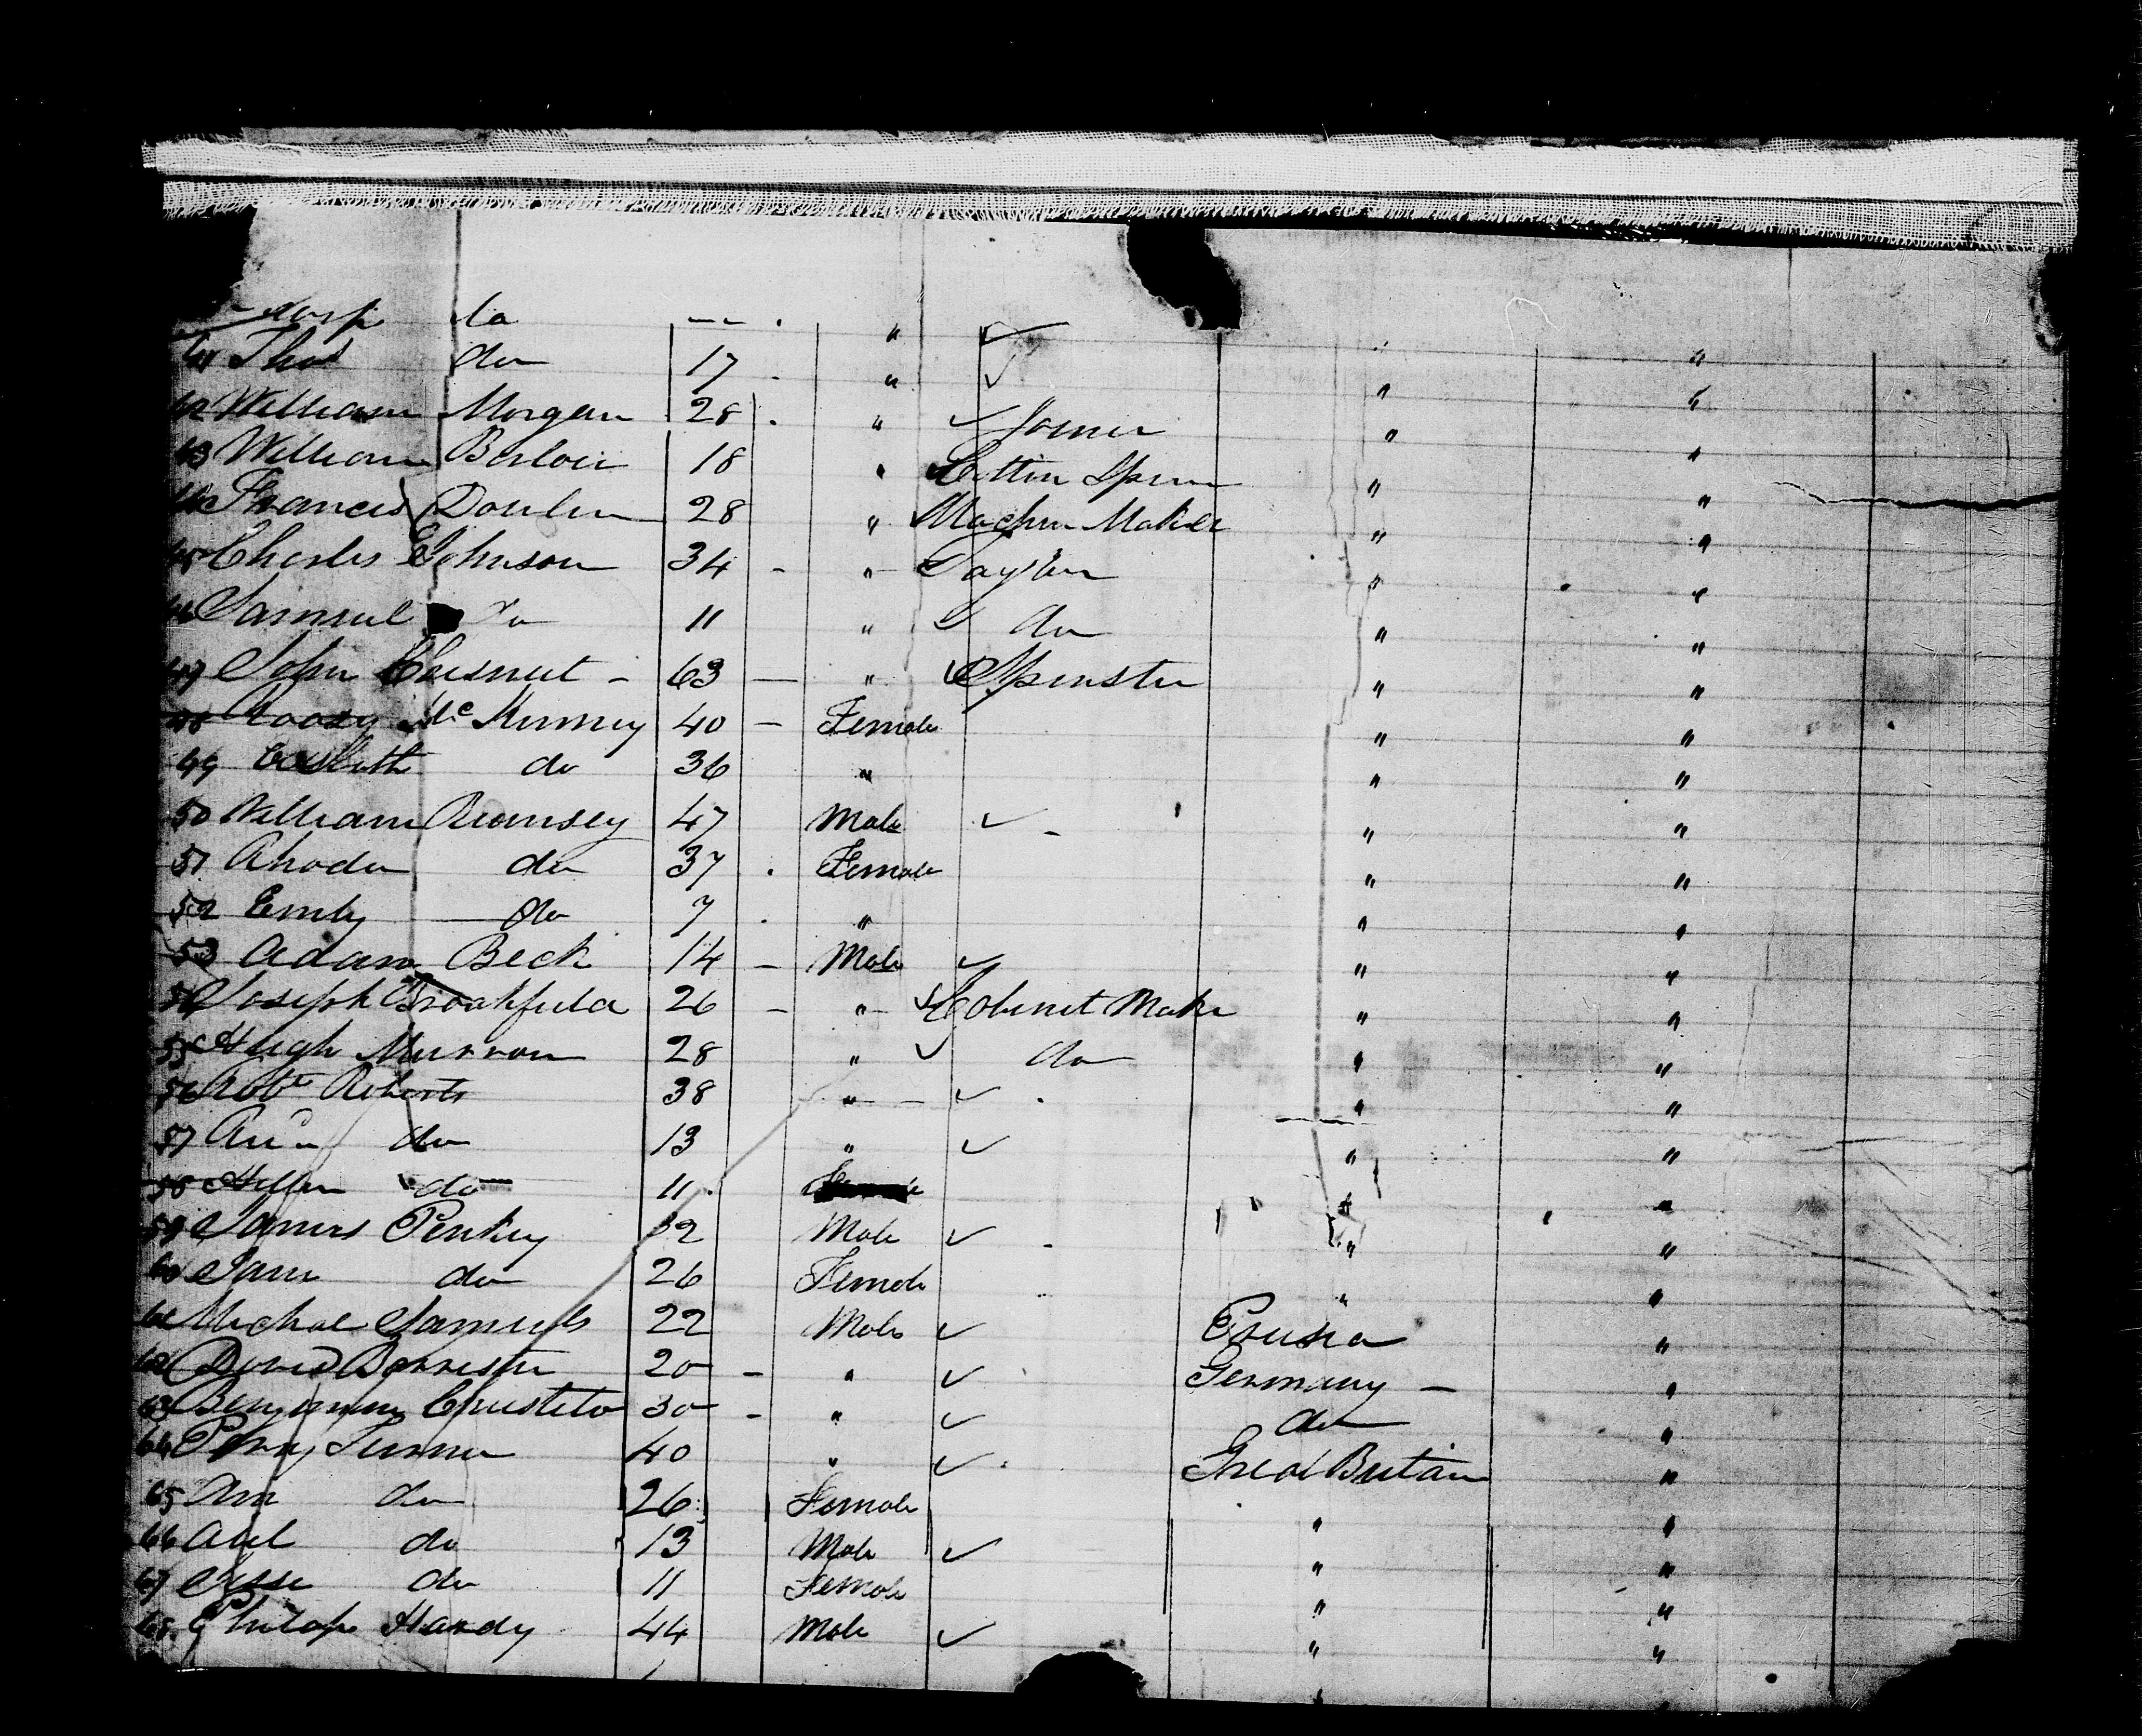 do
41 Thos do 17 " " "
42 William Morgan 28 " Joiner " "
43 William 18 " Cottin " "
44 Francis 28 " Machin Maker " "
45 Charles Johnson 34 - " Taylor " "
46 Samuel do 11 " do " "
47 John Chesnut - 63 — " Spinster " "
48 Mc Kinney 40 — Female " "
49 do 36 " " "
50 William Ramsey 47 Male - " "
51 Rhoda do 37 Female " "
52 Emily do 7 " " "
53 Adam Beck 14 - Male " "
54 Joseph Brookfield 26 - " Cabinet Maker " "
55 Hugh 28 " do " "
56 Robt Roberts 38 " " "
57 do 13 " " "
58 do 11 " "
59 James 32 Male " "
60 Jane do 26 Female " "
61 Michael Samuels 22 Male Prusia "
62 David 20 - " Germany — "
63 30 - " do "
64 Turner 40 " Great Britain "
65 Ann do 26 Female " "
66 do 13 Male " "
67 Jesse do 11 Female " "
68 Philap Hardy 44 Male " "